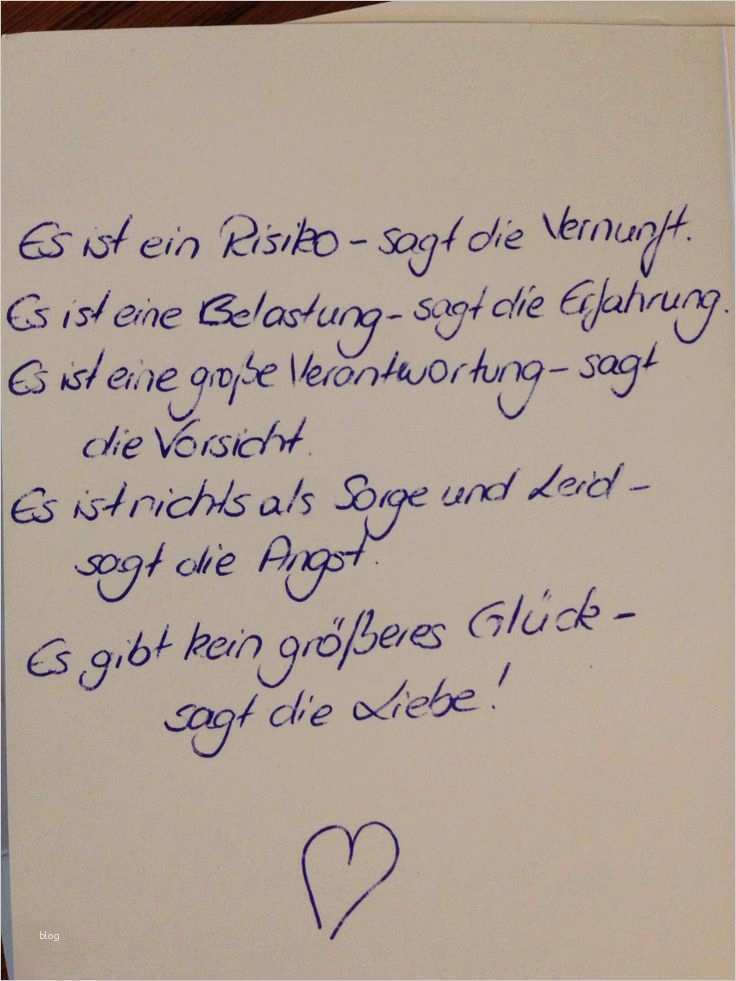 Es ist ein Risiko – sagt die Vernunft.
Es ist eine Belastung – sagt die Erfahrung.
Es ist eine große Verantwortung – sagt
die Vorsicht.
Es ist nichts als Sorge und Leid –
sagt die Angst.
Es gibt kein größeres Glück –
sagt die Liebe!
blog